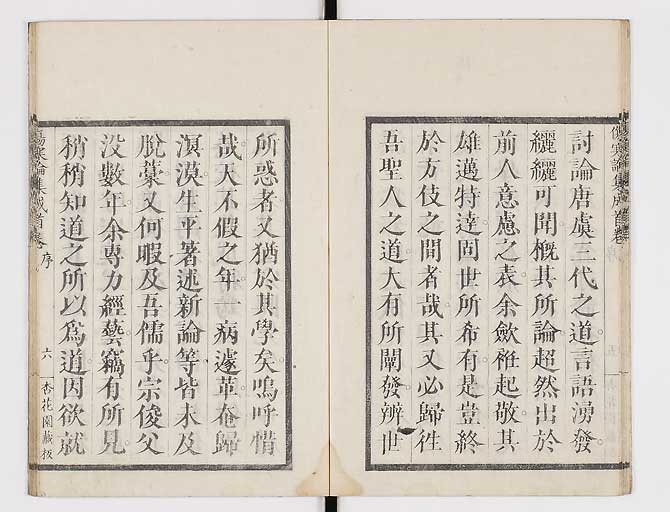 討論唐虞三代之道言語湧發
纚纚可聞概其所論超然出於
前人意慮之表余斂袵起敬其
雄邁特達固世所希有是豈終
於方伎之間者哉其又必歸往
吾聖人之道大有所闡發辨世
所惑者又猶於其學矣嗚呼惜
哉天不假之年一病遽革奄歸
溟漠生平著述新論等皆未及
脫藁又何暇及吾儒乎宗俊父
没數年余專力經藝竊有所見
稍稍知道之所以爲道因欲就
傷寒論集成首卷 序 六 杏花園藏板